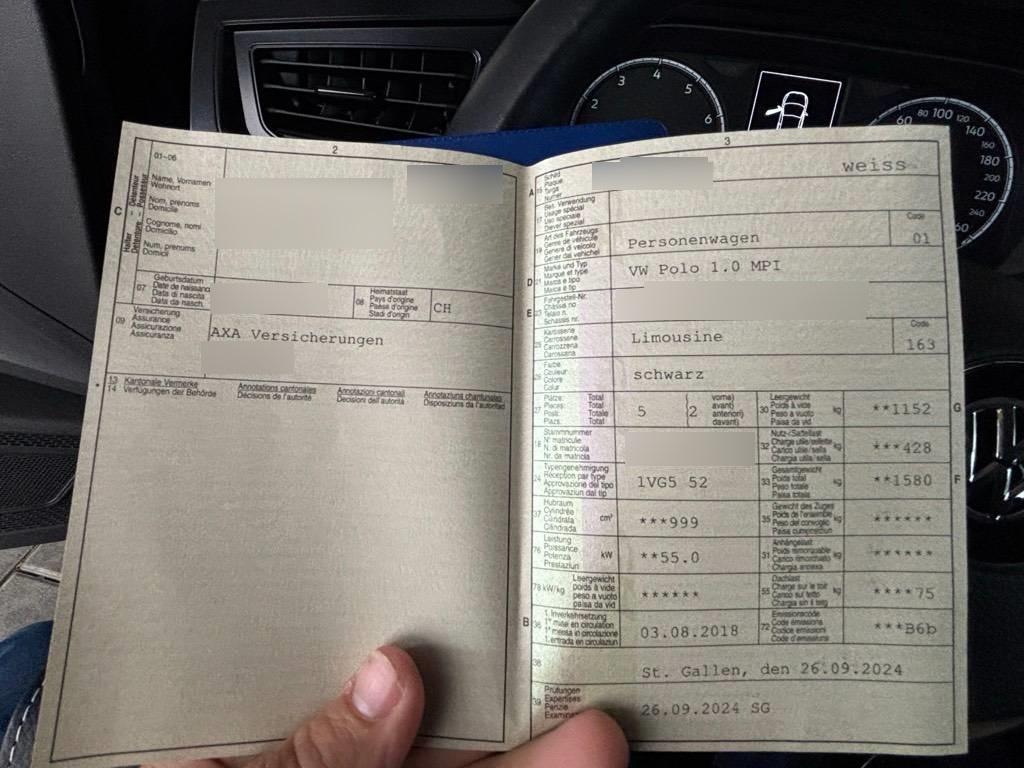 2
01-06
Name, Vornamen
Wohnort
Nom, prénoms
Domicile
Cognome, nomi
Domicilio
Num, prenums
Domicil
C
Halter
Détenteur
07
Geburtsdatum
Date de naissance
Data di nascita
Data da nasch.
08
Heimatstaat
Pays d'origine
Paese d'origine
Stadi d'origin
CH
09
Versicherung
Assurance
Assicurazione
Assicuranza
AXA Versicherungen
13
14
Kantonale Vermerke
Verfügungen der Behörde
Annotations cantonales
Décisions de l'autorité
Annotazioni cantonali
Decisioni dell'autorità
Annotaziuns chantunalas
Disposiziuns da l'autoritad
3
A
15
Schild
Plaque
Targa
Numer
weiss
17
Bes. Verwendung
Usage spécial
Uso speciale
Diever spezial
19
Art des Fahrzeugs
Genre de véhicule
Genere di veicolo
Gener dal vehichel
Personenwagen
Code
01
D
21
Marke und Typ
Marque et type
Marca e tipo
Marca e tip
VW Polo 1.0 MPI
E
23
Fahrgestell-Nr.
Châssis no
Telaio n.
Schassis nr.
25
Karosserie
Carrosserie
Carrozzeria
Carossaria
Limousine
Code
163
26
Farbe
Couleur
Colore
Colur
schwarz
27
Plätze: Total
Places: Total
Posti: Totale
Plazs: Total
5
(2
vorne)
avant)
anteriori)
davant)
30
Leergewicht
Poids à vide
Peso a vuoto
Paisa da vid
kg
**1152
G
18
Stammnummer
N° matricule
N. di matricola
Nr. da matricla
32
Nutz-/Sattellast
Charge utile/sellette
Carico utile/sella
Chargia utila/sella
kg
***428
24
Typengenehmigung
Réception par type
Approvazione del tipo
Approvaziun dal tip
1VG5 52
33
Gesamtgewicht
Poids total
Peso totale
Paisa totala
kg
**1580
F
37
Hubraum
Cylindrée
Cilindrata
Cilindrada
cm³
***999
35
Gewicht des Zuges
Poids de l'ensemble
Peso del convoglio
Paisa cumposiziun
kg
******
76
Leistung
Puissance
Potenza
Prestaziun
kW
**55.0
31
Anhängelast
Poids remorquable
Carico rimorchiato
Chargia annexa
kg
******
78
kW/kg
Leergewicht
poids à vide
peso a vuoto
paisa da vid
******
55
Dachlast
Charge sur le toit
Carico sul tetto
Chargia sin il tetg
kg
****75
B
36
1. Inverkehrsetzung
1re mise en circulation
1a messa in circolazione
1. entrada en circulaziun
03.08.2018
72
Emissionscode
Code émissions
Codice emissioni
Code d'emissiuns
***B6b
38
St. Gallen, den 26.09.2024
39
Prüfungen
Expertises
Perizie
26.09.2024 SG
2
3
4
5
6
60
80
100
120
140
160
180
200
220
240